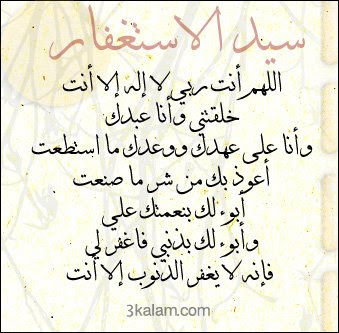 سيد الاستغفار
اللهم أنت ربي لا إله إلا أنت
خلقتني وأنا عبدك
وأنا على عهدك ووعدك ما استطعت
أعوذ بك من شر ما صنعت
أبوء لك بنعمتك علي
وأبوء لك بذنبي فاغفر لي
فإنه لا يغفر الذنوب إلا أنت
3kalam.com